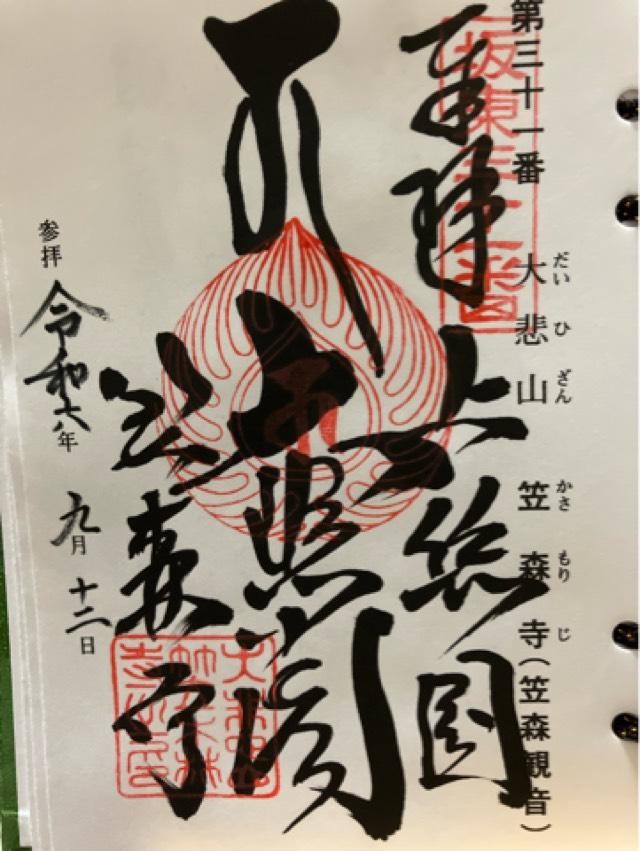 第三十一番
大悲山
だいひざん
笠森寺(笠森観音)
かさもりじ
坂東三十一番
奉拝
上総国
大悲閣
笠森寺
参拝
令和六年
九月十二日